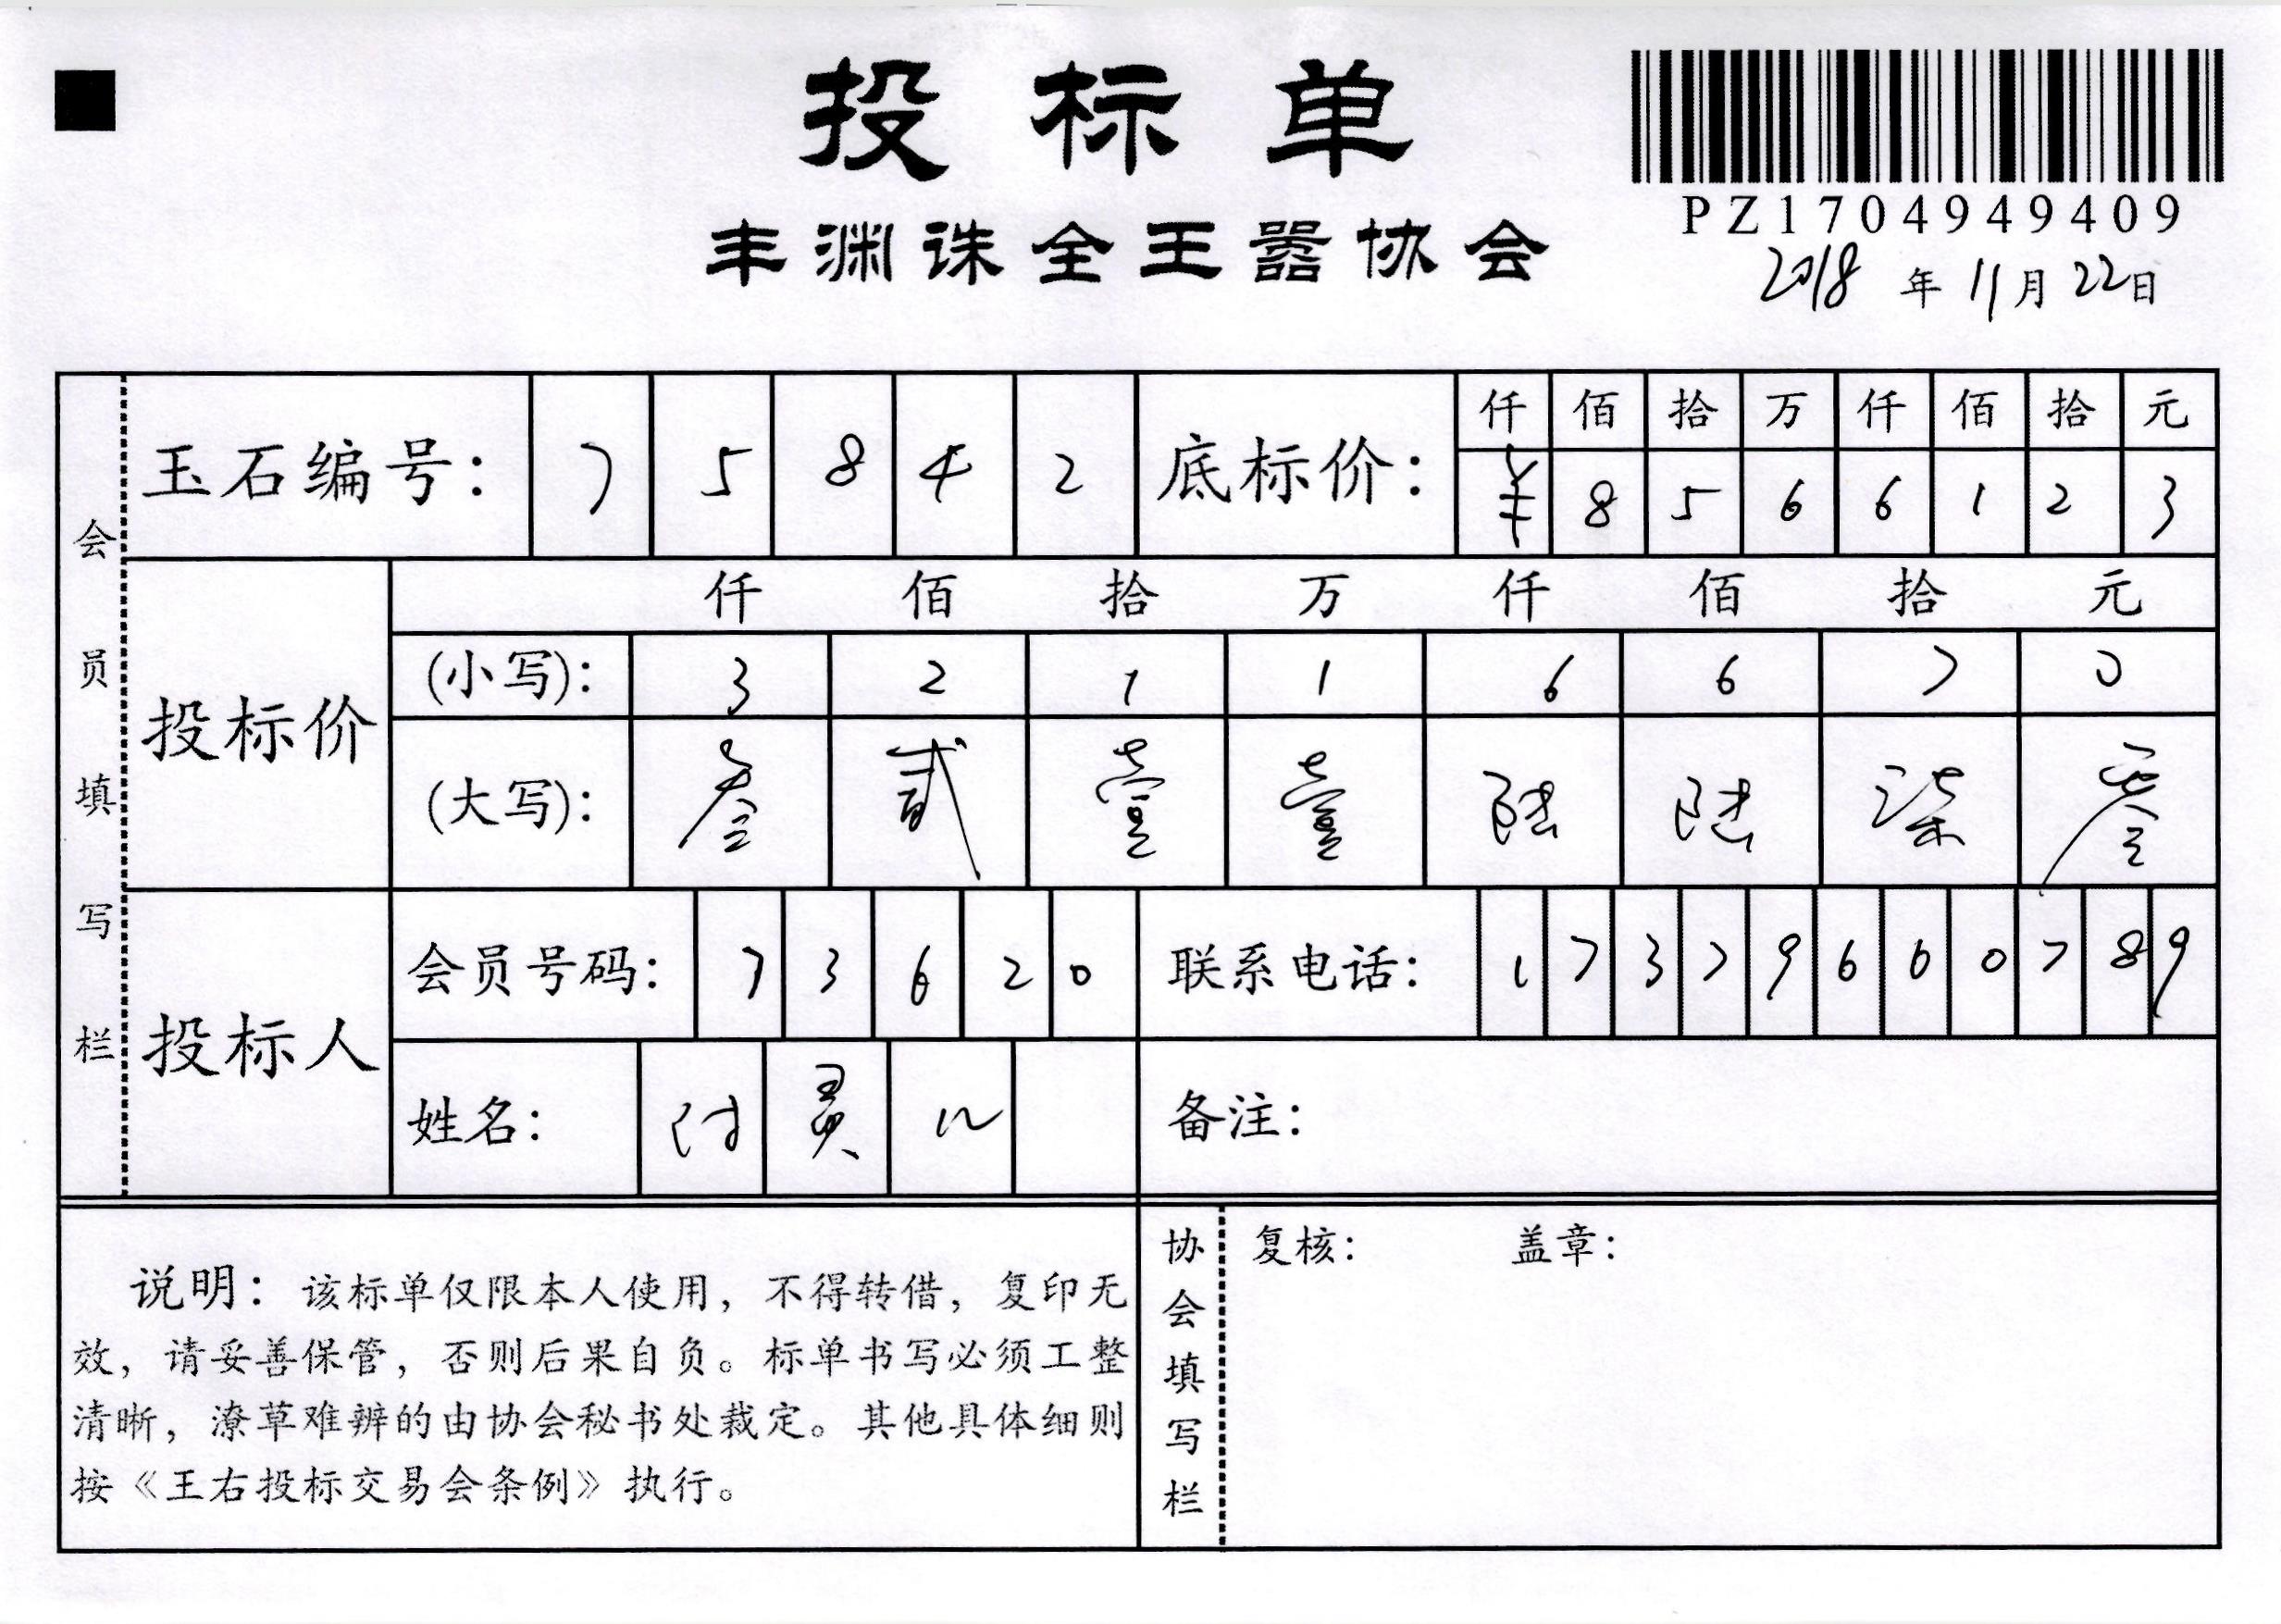 投标单
PZ1704949409
丰渊诛全王嚣协会
2018年11月22日
会员填写栏
玉石编号：75842
底标价：
仟佰拾万仟佰拾元
¥8566123
投标价
仟佰拾万仟佰拾元
(小写)：32116670
(大写)：叁贰壹壹陆陆柒零
投标人
会员号码：73620
联系电话：17379660789
姓名：付灵
备注：
说明：该标单仅限本人使用，不得转借，复印无
效，请妥善保管，否则后果自负。标单书写必须工整
清晰，潦草难辨的由协会秘书处裁定。其他具体细则
按《王右投标交易会条例》执行。
协会填写栏
复核： 盖章：